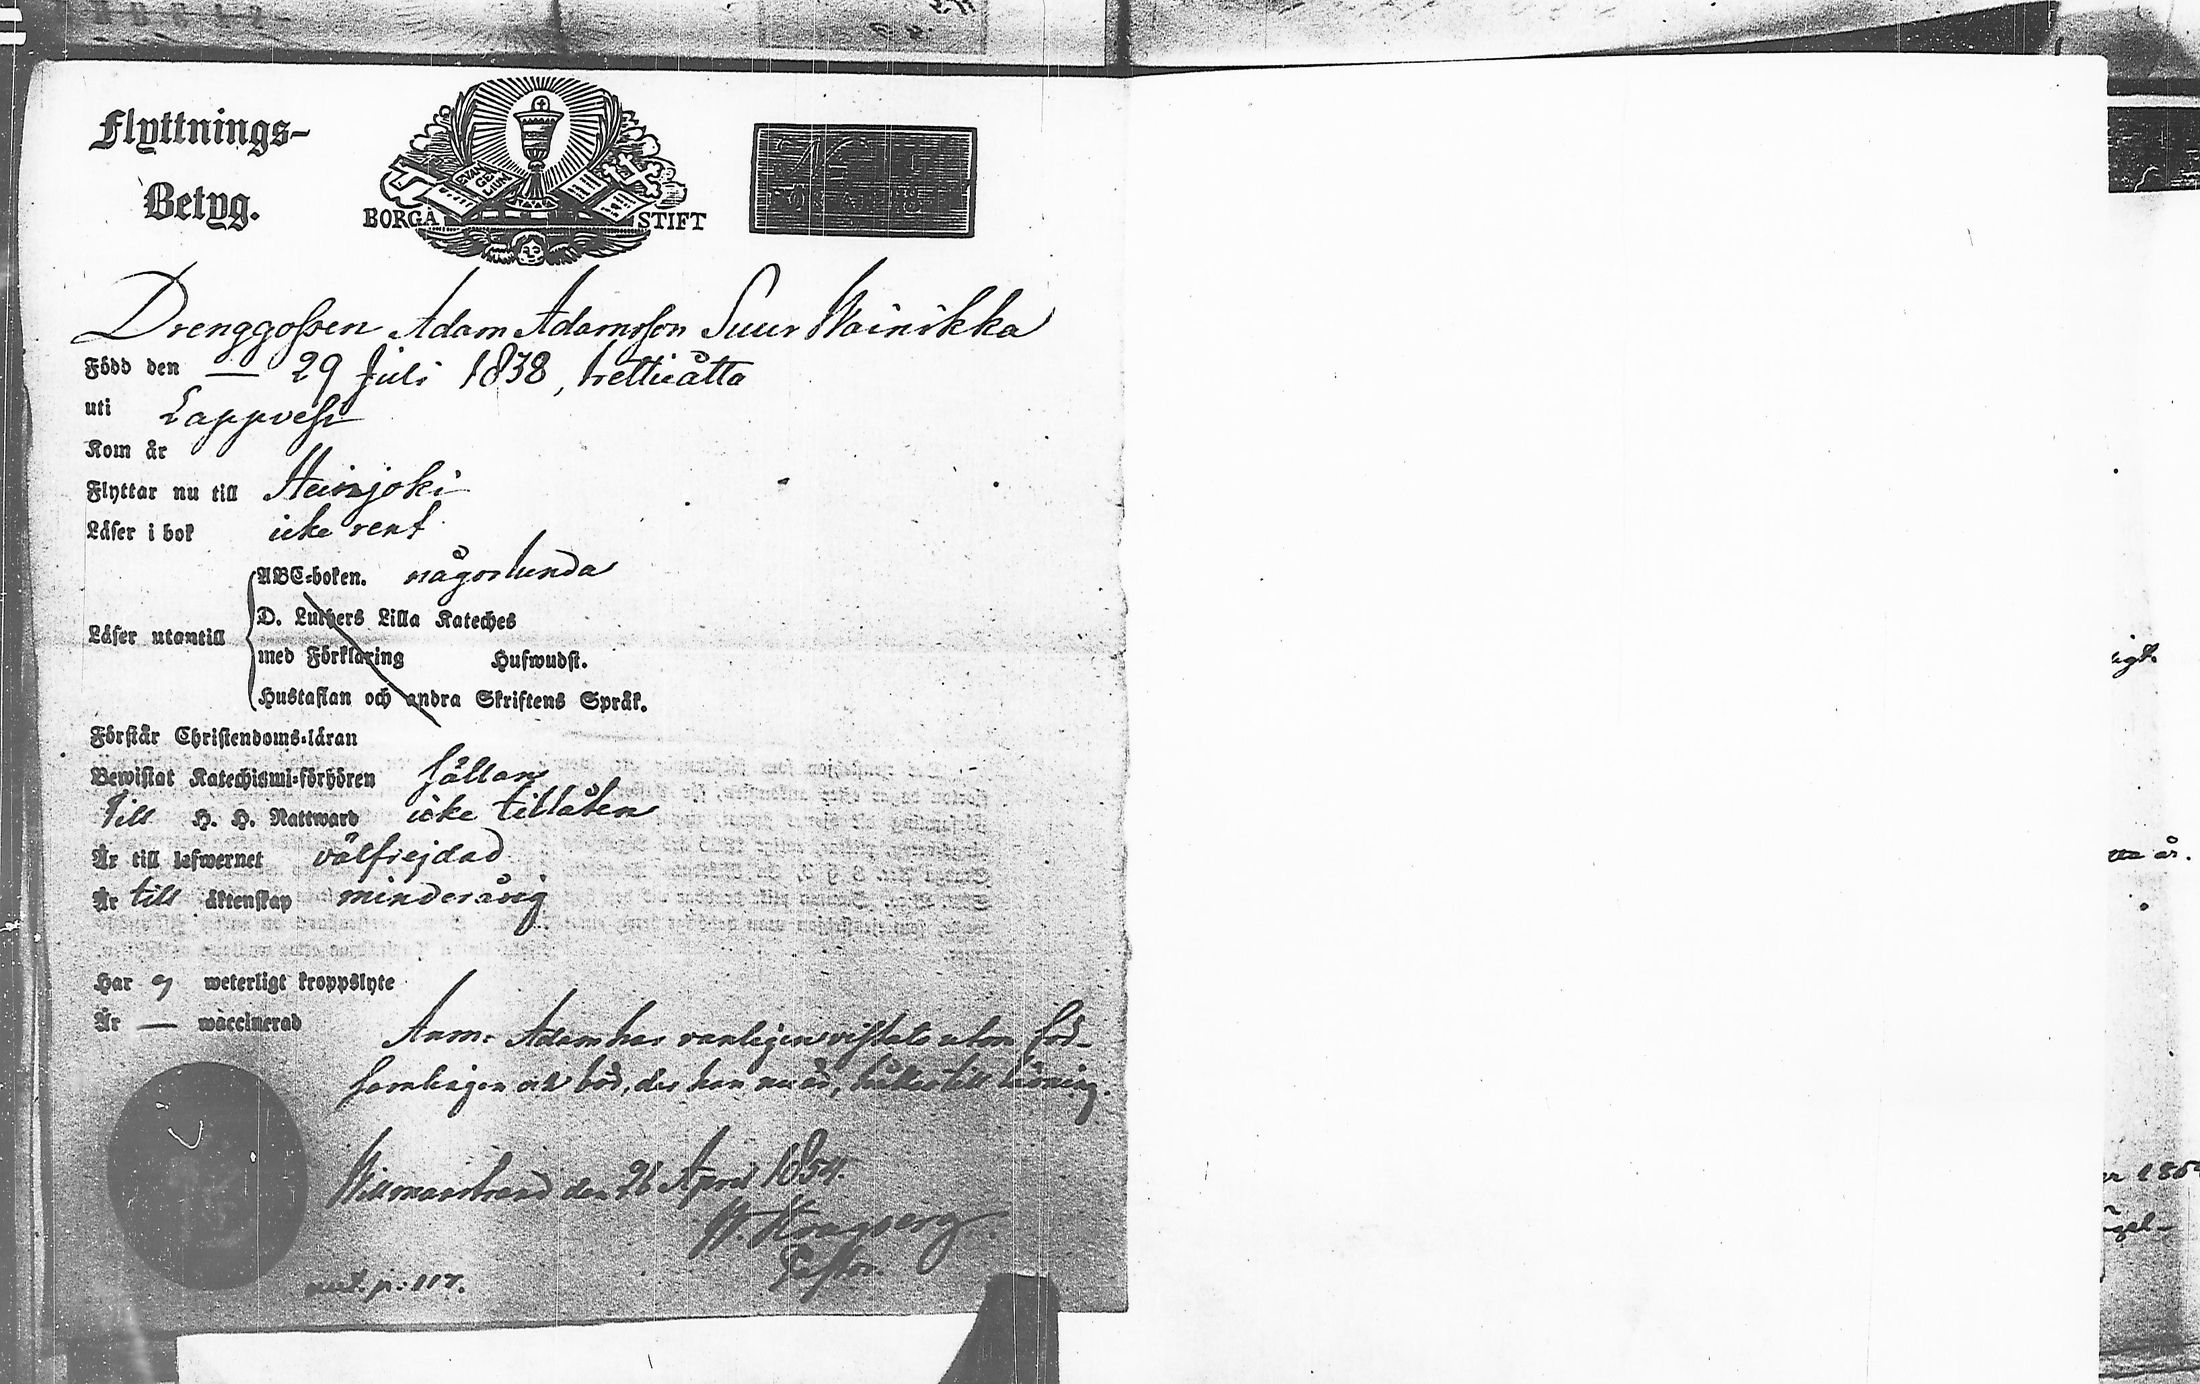 Flyttnings-
Betyg.
EVAN
GE
LIUM
BORGÅ STIFT
Drenggossen Adam Adamsson Suur Wainikka
Född den — 29 Juli 1838, trettiåtta
uti Lappvesi
Kom år
Flyttar nu till Heinjoki
Läser i bok icke rent
ABC-boken. någorlunda
D. Luthers Lilla Kateches
Läser utantill
med Förklaring Hufwudst.
Hustaflan och andra Skriftens Språk.
Förstår Christendoms-läran
Bewistat Katechismi-förhören sällan
Till H. H. Nattward icke tillåten
Är till lefwernet välfrejdad
Är till äktenskap minderårig
Har ej weterligt kroppslyte
Är — waccinerad
Anm: Adam har vanligen vistats utom för-
samlingen och bör, der han nu är, hållas till läsning.
Willmanstrand den 26 April 1854.
Pastor.
p: 117.